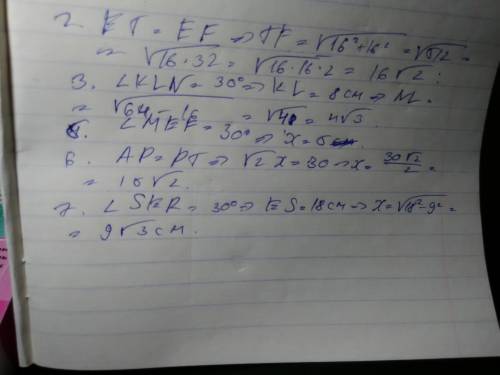 2. ET = EF => TF = √16²+16² = √512 =
= √16·32 = √16·16·2 = 16√2.
3. ∠KLN = 30° => KL = 8см => NL =
= √64-16 = √48 = 4√3
5. ∠MEF = 30° => x = 5
6. AP = PT => √2x = 30 => x = 30√2/2 =
= 15√2.
7. ∠SER = 30° => ES = 18см => x = √18²-9² =
= 9√3 см.